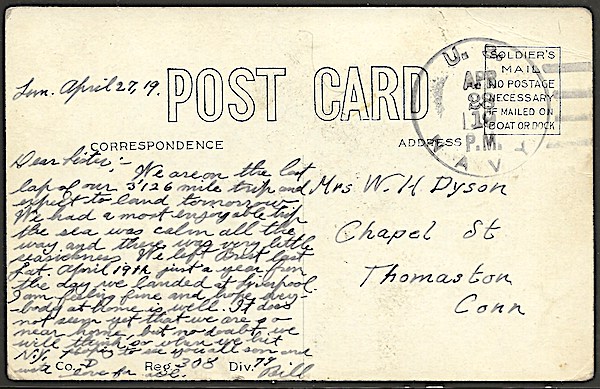 Sun. April 27, 19.
POST CARD
U. S. NAVY
APR
28
19
P.M.
SOLDIER'S
MAIL
NO POSTAGE
NECESSARY
IF MAILED ON
BOAT OR DOCK
CORRESPONDENCE
ADDRESS
Dear Sister:-
We are on the last
lap of our 3126 mile trip and
expect to land tomorrow.
We had a most enjoyable trip
the sea was calm all the
way and there was very little
seasickness. We left Brest last
Sat. April 19th just a year from
the day we landed at Liverpool.
I am feeling fine and hope every-
body at home is well. It does
not seem yet that we are so
near home, but no doubt we
will think so when we hit
N.Y. to see you all soon and
with love for all.
Bill
Co. D Reg 308 Div. 77
Mrs W. H Dyson
Chapel St
Thomaston
Conn